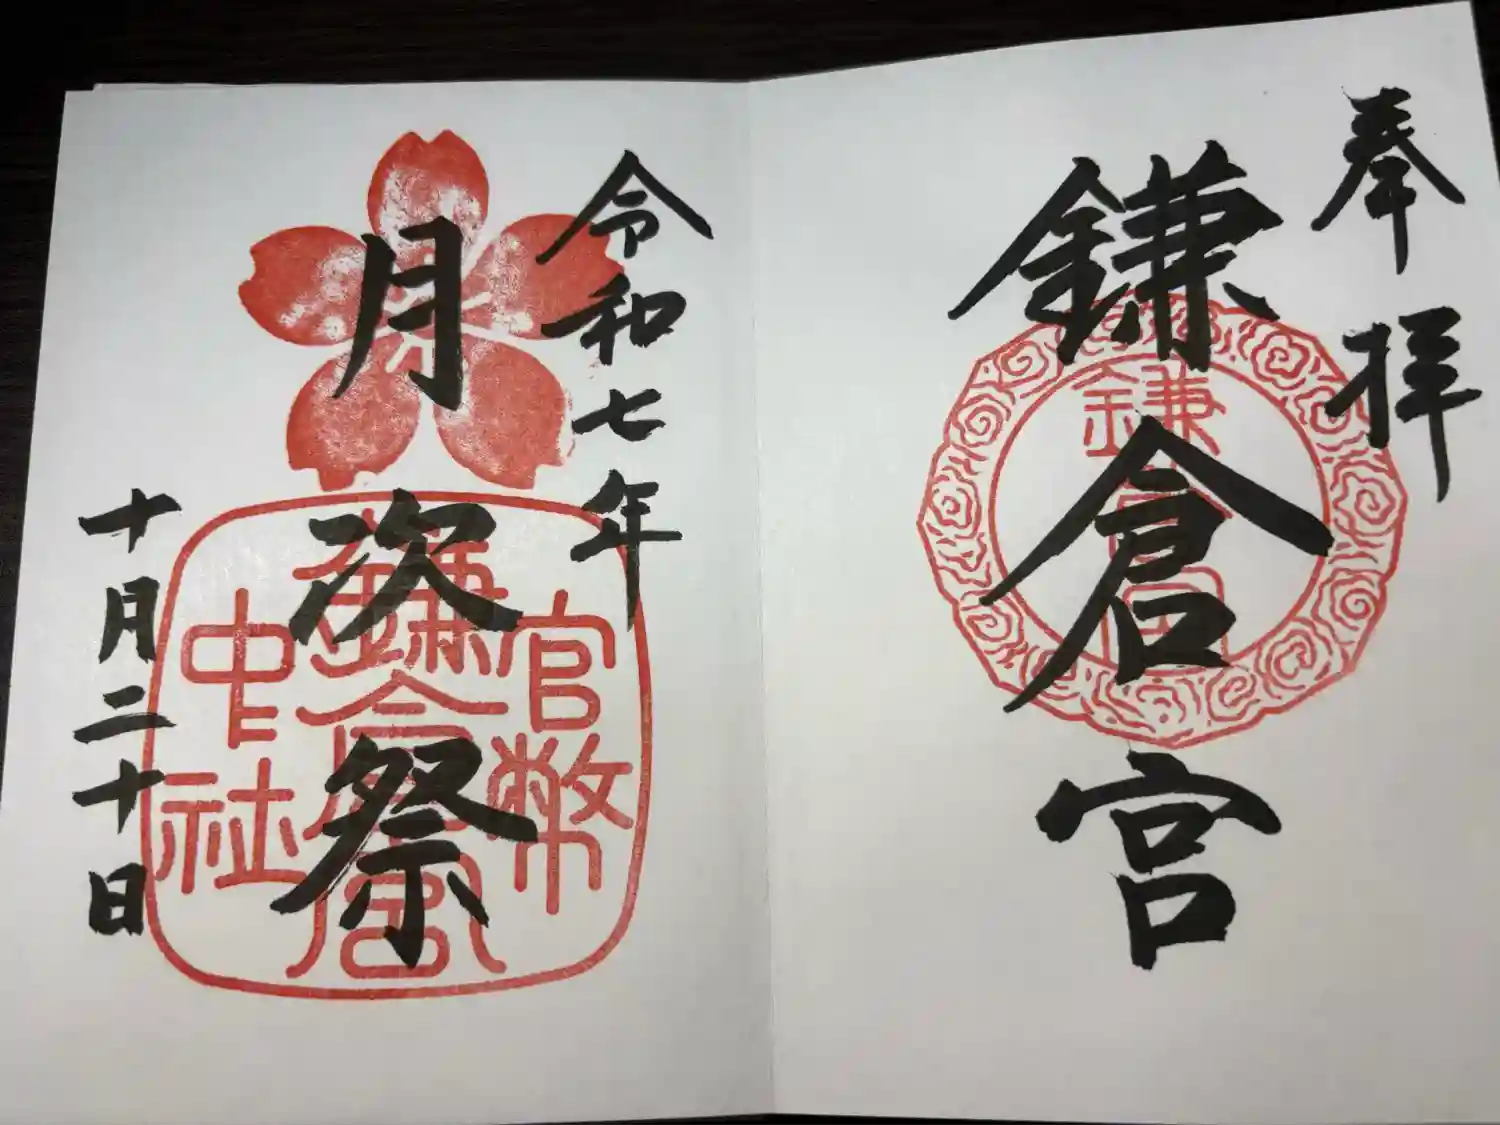 奉拝
鎌倉宮
鎌倉宮
令和七年
月次祭
十月二十日
官幣
鎌倉宮
中社